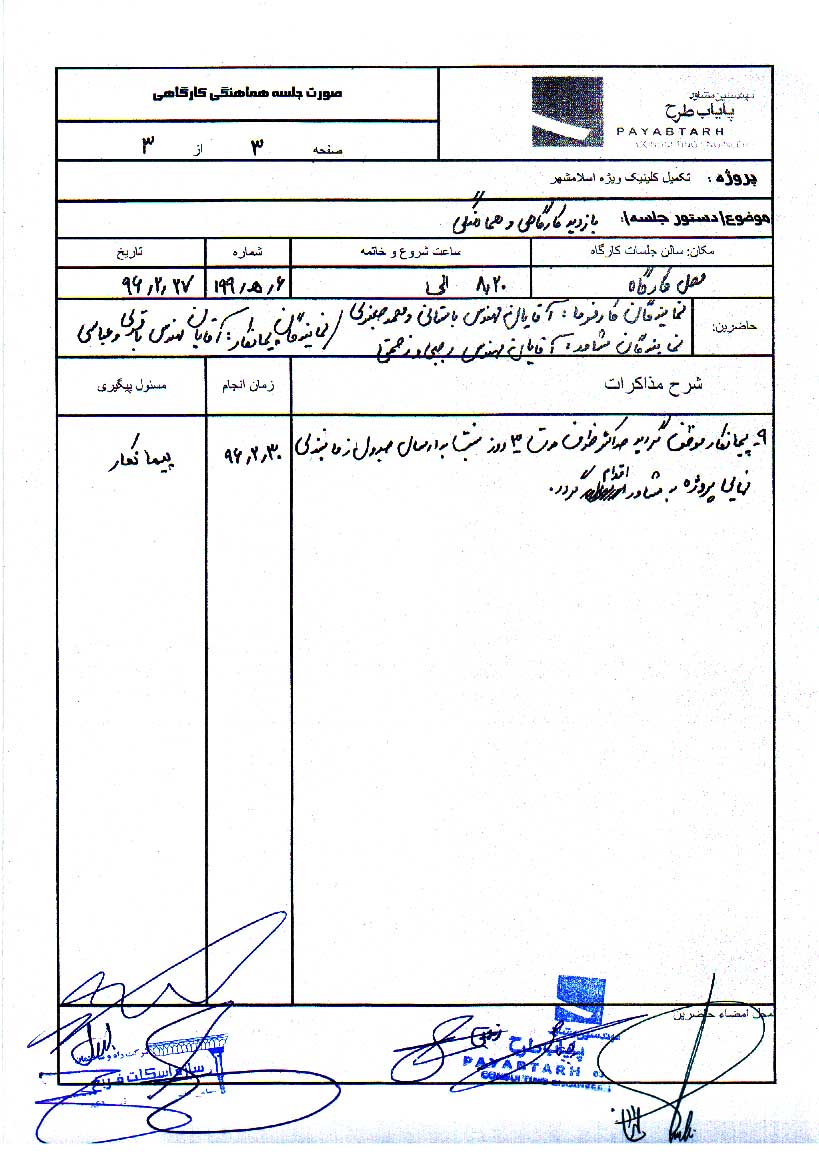 صورت جلسه هماهنگی کارگاهی
مهندسین مشاور
پایاب طرح
PAYABTARH
CONSULTING ENGINEERS
صفحه ۳ از ۳
پروژه : تکمیل کلینیک ویژه اسلامشهر
موضوع(دستور جلسه): بازدید کارگاهی و هماهنگی
مکان: سالن جلسات کارگاه
ساعت شروع و خاتمه
شماره
تاریخ
محل کارگاه
۸,۲۰ الی
۱۹۹,ه,۶
۹۶,۲,۲۷
حاضرین:
نمایندگان کارفرما : آقایان مهندس باستانی و / نمایندگان پیمانکار: آقایان مهندس و عباسی
نمایندگان مشاور : آقایان مهندس رجبی و زحمتی
شرح مذاکرات
زمان انجام
مسئول پیگیری
۹- پیمانکار موظف گردید حداکثر ظرف مدت ۳ روز نسبت به ارسال جدول زمانبندی
نهایی پروژه به مشاور اقدام گردد.
۹۶,۲,۳۰
پیمانکار
محل امضاء حاضرین
مهندسین مشاور
پایاب طرح
PAYABTARH
CONSULTING ENGINEERS
شرکت راه و ساختمان
سازه اسکلت